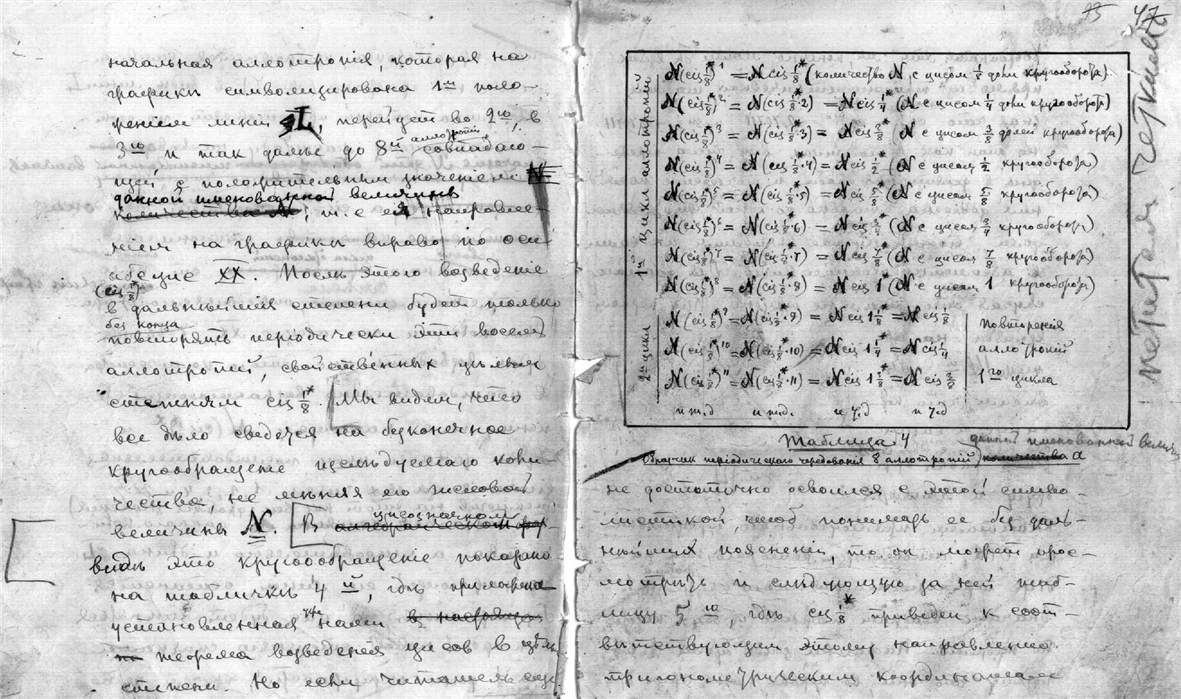 начальная аллотропія, которая на
графикѣ символизирована 1ᵐ, поло-
женіем линіи L, перейдет во 2ю, в
3ю и так далѣе до 8й аллотропіи совпадаю-
щей с положительным значеніем N
данной именованной величины
т. е. ея направле-
ніем на графикѣ вправо по оси
абсцисс XX. Послѣ этого возведеніе
(cis 1/8*)
в дальнѣйшія степени будет только
без конца
повторять періодически эти восемь
аллотропій, свойственных цѣлым
степеням cis 1/8*. Мы видем, что
все дѣло сведется на безконечное
кругообращеніе изслѣдуемаго коли-
чества, не мѣняя его числовой
величины N. [В цисозначном
видѣ это кругообращеніе показано
на табличкѣ 4й, гдѣ приложена
установленная уже нами
теорема возведенія цисов в цѣлыя
степени. Но если читатель еще
75 47
1й цикл аллотропій
N(cis 1/8*)¹ = N cis 1/8* (количество N с цисом 1/8 доли кругооборота)
N(cis 1/8*)² = N(cis 1/8*·2) = N cis 1/4* (N с цисом 1/4 доли кругооборота)
N(cis 1/8*)³ = N(cis 1/8*·3) = N cis 3/8* (N с цисом 3/8 долей кругооборота)
N(cis 1/8*)⁴ = N(cis 1/8*·4) = N cis 1/2* (N с цисом 1/2 кругооборота)
N(cis 1/8*)⁵ = N(cis 1/8*·5) = N cis 5/8* (N с цисом 5/8 кругооборота)
N(cis 1/8*)⁶ = N(cis 1/8*·6) = N cis 3/4* (N с цисом 3/4 кругооборота)
N(cis 1/8*)⁷ = N(cis 1/8*·7) = N cis 7/8* (N с цисом 7/8 кругооборота)
N(cis 1/8*)⁸ = N(cis 1/8*·8) = N cis 1 (N с цисом 1 кругооборота)
2й цикл
N(cis 1/8*)⁹ = N(cis 1/8*·9) = N cis 1 1/8* = N cis 1/8 Повторенія
N(cis 1/8*)¹⁰ = N(cis 1/8*·10) = N cis 1 1/4* = N cis 1/4 аллотропій
N(cis 1/8*)¹¹ = N(cis 1/8*·11) = N cis 1 3/8* = N cis 3/8 1го цикла
и т.д и т.д. и т.д и т.д
Таблица 4
данной именованной велич
Образчик періодическаго чередованія 8 аллотропій количества a
не достаточно освоился с этой симво-
листикой, чтоб понимать ее без даль-
нѣйших поясненій, то он может прос-
мотрѣть и слѣдующую за ней таб-
лицу 5ю, гдѣ cis 1/8* приведен к соот-
вѣтствующим этому направленію
тригонометрическим координатам